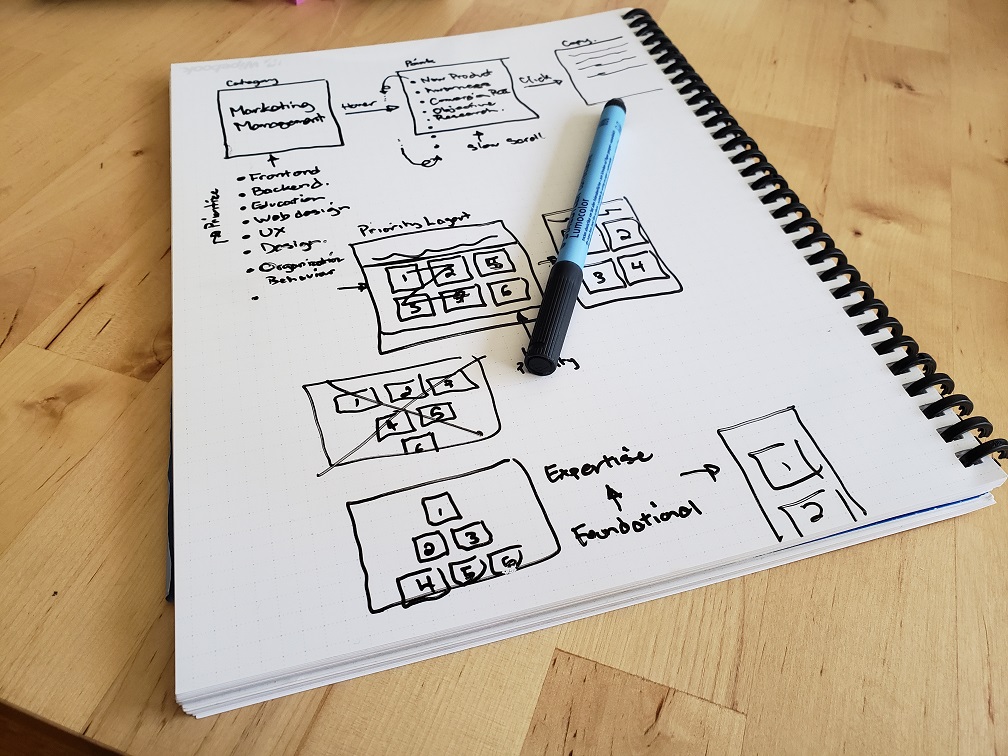 Category
Marketing
Management
Hover
New Product
Awareness
Objective
Research
Click
Copy.
slow scroll
Prioritize
• Frontend
• Backend.
• Education
• Web design
• UX
• Design.
• Organization
Behavior
Priority Layout
1 2 3
5 6
2
3 4
Lumocolor
1 2 3
4 5
6
1
2 3
4 5 6
Expertise
Foundational
1
2